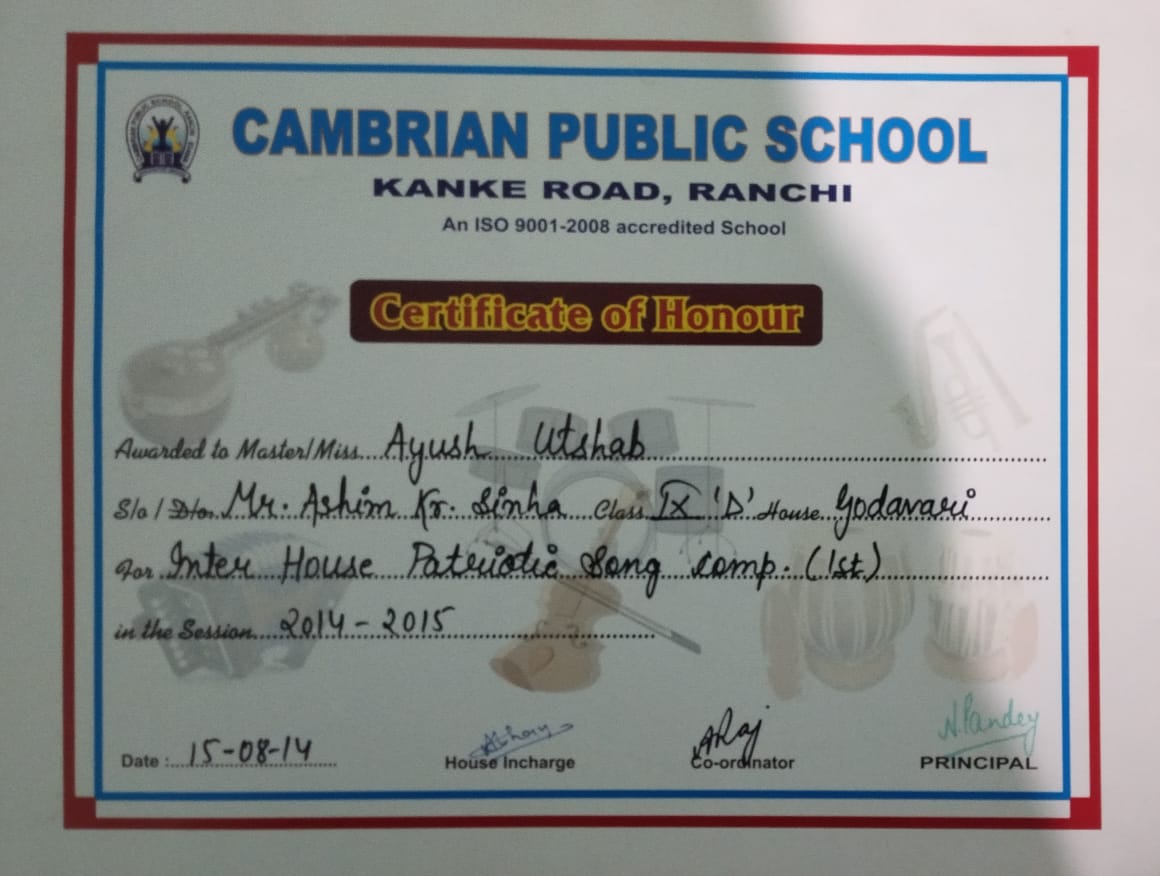 CAMBRIAN PUBLIC SCHOOL
KANKE ROAD, RANCHI
An ISO 9001-2008 accredited School
Certificate of Honour
Awarded to Master/Miss Ayush Utshab
S/o / D/o Mr. Ashim Kr. Sinha Class IX 'D' House Godavari
For Inter House Patriotic Song Comp. (1st)
in the Session 2014 - 2015
Date : 15-08-14
House Incharge
ARaj
Co-ordinator
N.Pandey
PRINCIPAL